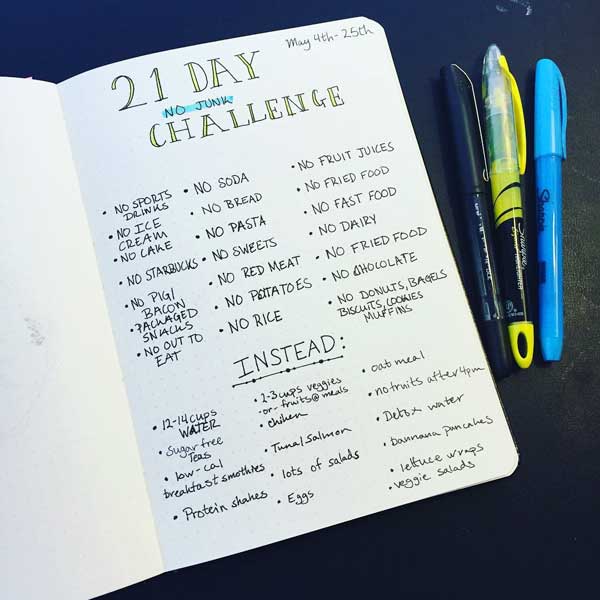 May 4th-25th
21 DAY
NO JUNK
CHALLENGE
• NO SPORTS
DRINKS
• NO ICE
CREAM
• NO CAKE
• NO STARBUCKS
• NO PIG/
BACON
• PACKAGED
SNACKS
• NO OUT TO
EAT
• NO SODA
• NO BREAD
• NO PASTA
• NO SWEETS
• NO RED MEAT
• NO POTATOES
• NO RICE
• NO FRUIT JUICES
• NO FRIED FOOD
• NO FAST FOOD
• NO DAIRY
• NO FRIED FOOD
• NO CHOCOLATE
• NO DONUTS, BAGELS
BISCUITS, COOKIES
MUFFINS
INSTEAD:
• 12-14 cups
WATER
• Sugar free
Teas
• low-cal
breakfast smothies
• Protein shakes
• 2-3 cups veggies
-or- fruits@meals
• chiken
• Tuna/salmon
• lots of salads
• Eggs
• oatmeal
• no fruits after 4pm
• Detox water
• bannana pancakes
• lettuce wraps
• veggie salads
Sharpie
Sharpie